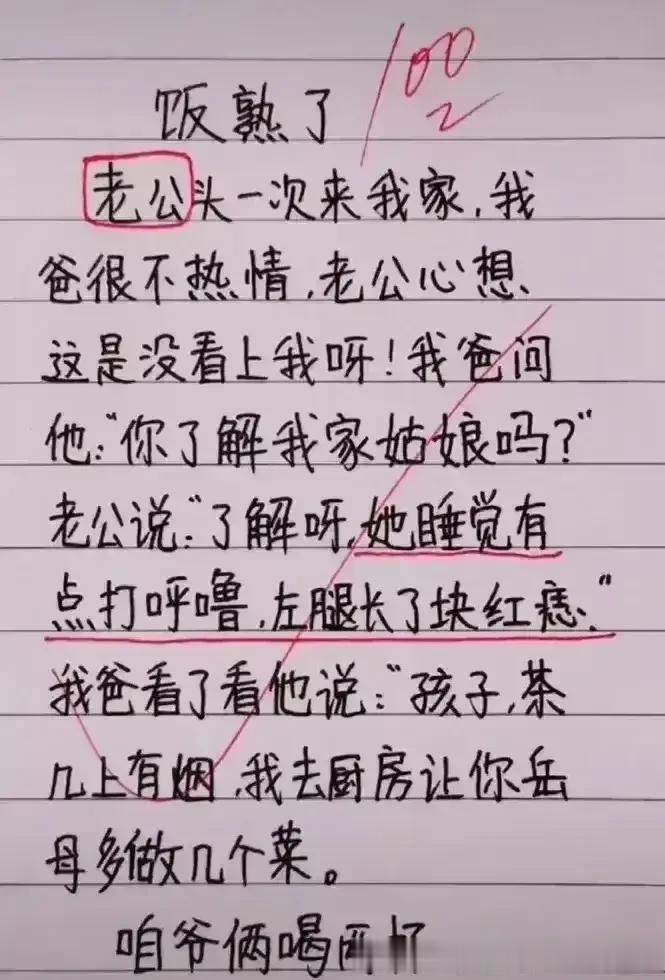 饭熟了
100
老公头一次来我家,我
爸很不热情,老公心想、
这是没看上我呀!我爸问
他:"你了解我家姑娘吗?"
老公说:"了解呀,她睡觉有
点打呼噜,左腿长了块红痣."
我爸看了看他说:"孩子,茶
几上有烟,我去厨房让你岳
母多做几个菜。
咱爷俩喝两杯